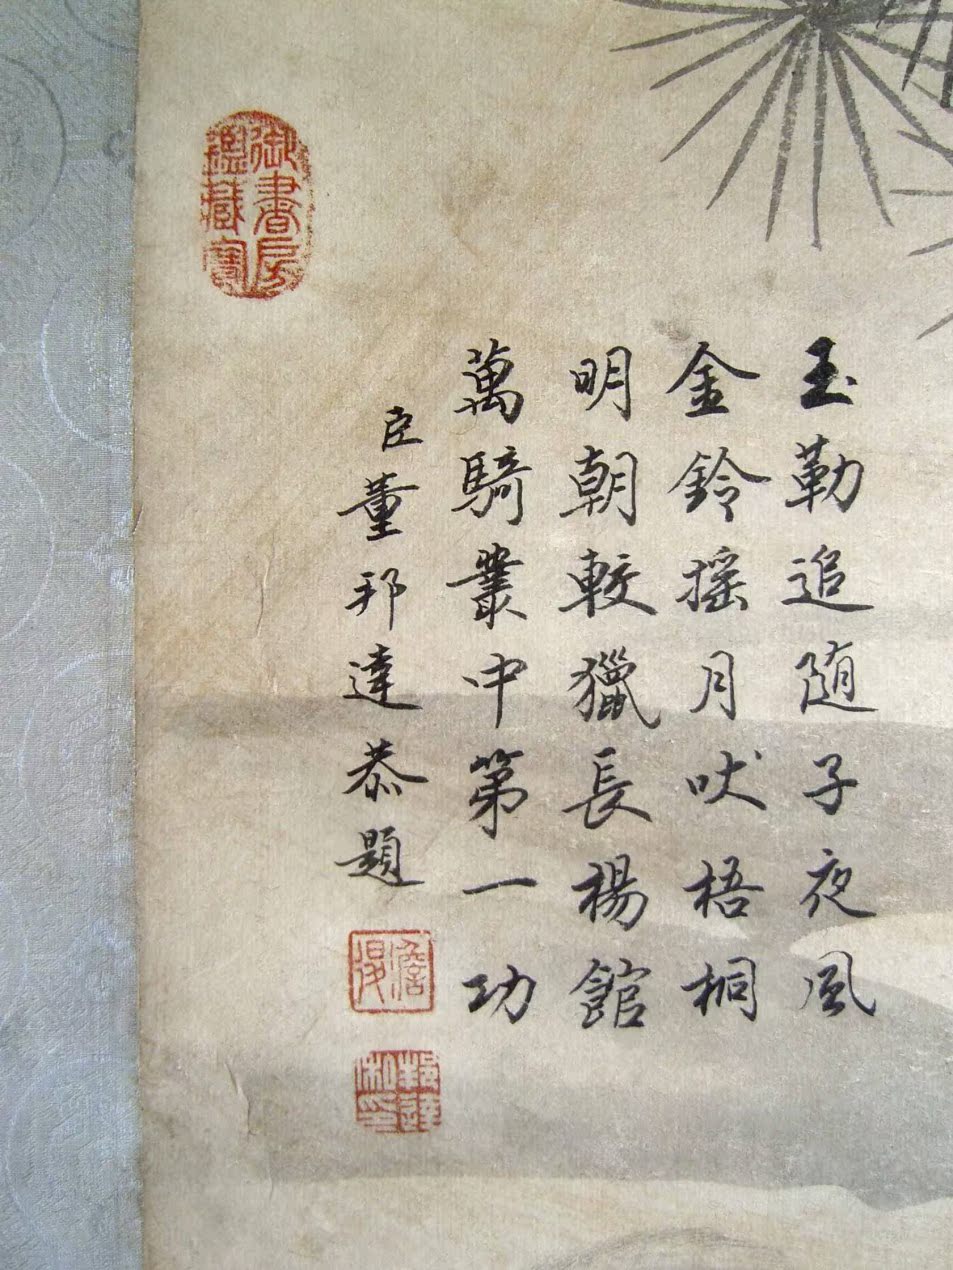 玉勒追随子夜風
金鈴摇月吠梧桐
明朝較獵長楊館
萬騎叢中第一功
臣董邦達恭題
御書房
鑑藏寶